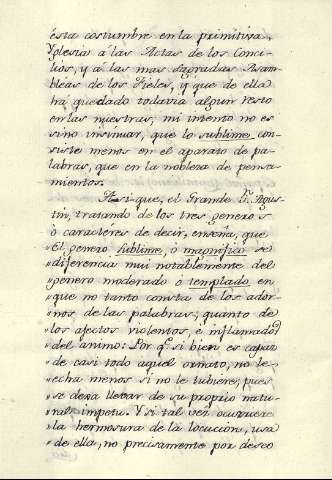 ésta costumbre en la primitiva
Yglesia á las Actas de los Conci-
lios, y á las mas sagradas Asam-
bléas de los Fieles, y que de ella
há quedado todavia algun resto
en las nuestras; mi intento no es
sino insinuar, que lo sublime con-
siste menos en el aparato de pa-
labras, que en la nobleza de pensa-
mientos.
Asi que, el Grande Sn. Agus-
tin, tratando de los tres generos
ò caracteres de decir, enseña, que
"El genero sublime, ò magnifico se
"diferencia mui notablemente del
"genero moderado ò templado, en
"que no tanto consta de los ador-
"nos de las palabras; quanto de
"los afectos violentos, e inflamados
"del animo: Por qe. si bien es capaz
"de casi todo aquel ornato, no le
"echa menos si no le tubiere; pues
"se dexa llevar de su proprio natu-
"ral impetu. Y si tal vez ocurriere
"la hermosura de la locucion, usa
"de ella, no precisamente por deseo